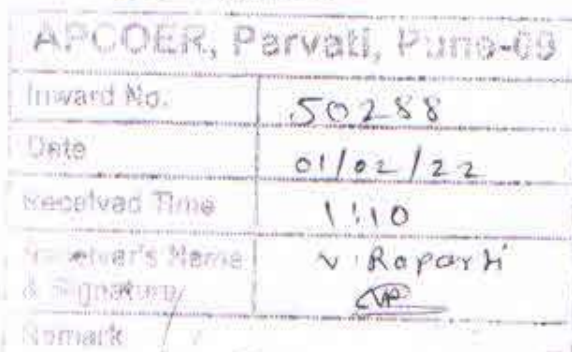 APCOER, Parvati, Pune-09
Inward No. 50288
Date 01/02/22
Received Time 11:10
Receiver's Name V. Raparti
& Signature
Remark